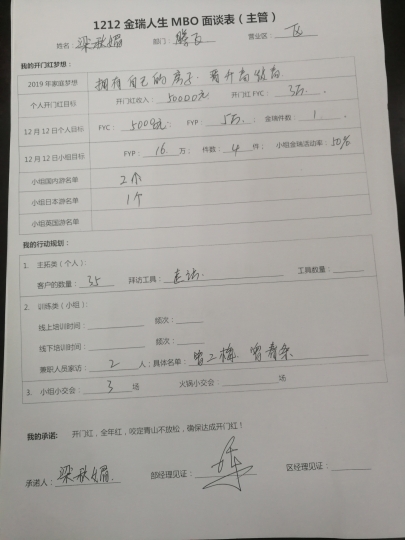 1212 金瑞人生 MBO 面谈表（主管）
姓名：梁秋娟 部门：腾飞 营业区：区
我的开门红梦想：
2019 年家庭梦想 拥有自己的房子.晋升高级
个人开门红目标 开门红收入：50000元 开门红 FYC：3万.
12 月 12 日个人目标 FYC：5000元. FYP：5万. 金瑞件数：1.
12 月 12 日小组目标 FYP：16 万； 件数：4 件； 小组金瑞活动率：50%
小组国内游名单 2个
小组日本游名单 1个
小组英国游名单
我的行动规划：
1. 主拓类（个人）：
客户的数量：35 拜访工具： 工具数量：
2. 训练类（小组）：
线上培训时间： 频次：
线下培训时间： 频次：
兼职人员家访：2 人；具体名单：曾
3. 小组小交会：3 场 火锅小交会： 场
我的承诺： 开门红，全年红，咬定青山不放松，确保达成开门红！
承诺人：梁秋娟 部经理见证： 区经理见证：